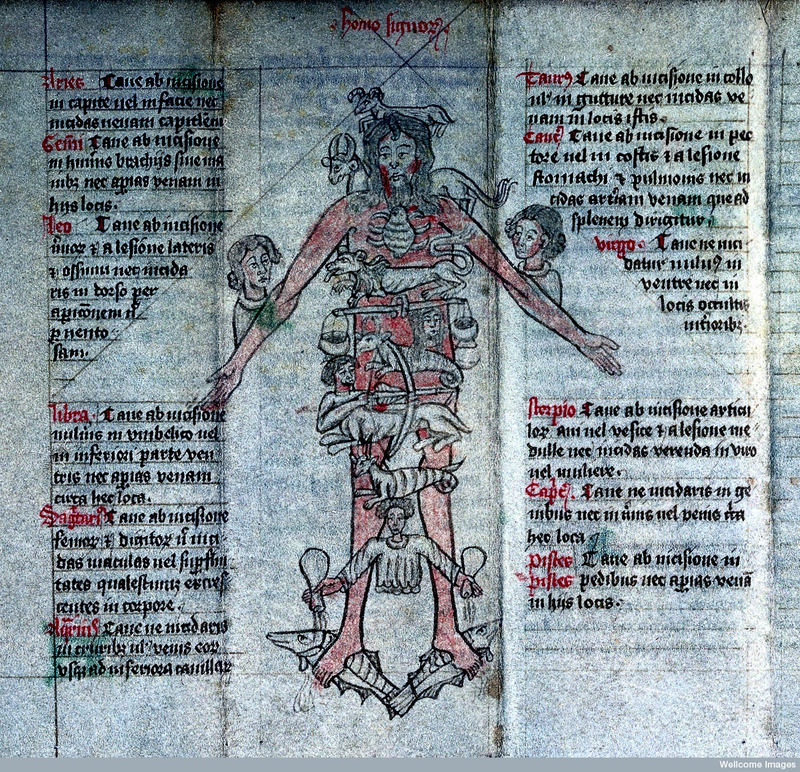 homo signorꝝ
Aries Caue ab incisione
in capite uel in facie nec
incidas uenam capitalem
Gemi Caue ab incisione
in humeris brachijs siue ma
nibꝫ nec aperias uenam in
hijs locis.
Leo Caue ab incisione
et a lesione lateris
et ossium nec incida
ris in dorso per
sam.
libra. Caue ab incisione
in umbelico uel
in inferiori parte uen
tris nec apias uenam
circa hec loca.
Sagittari9 Caue ab incisione
femorꝝ et
das maculas uel
tates
centes in corpore.
Aqri9 Caue ne incidaris
in cruribꝫ ul' uenis eorꝝ
usqꝫ ad inferiora cauillarꝝ
Taur9 Caue ab incisione in collo
ul' in gutture nec incidas ue
nam in locis istis.
Canc̃ Caue ab incisione in pec
tore uel in costis et a lesione
stomachi et pulmonis nec in
cidas arteriam uenam que ad
splenem dirigitur.
virgo. Caue ne inci
datur uuln9 in
uentre nec in
locis occultis
interioribꝫ.
Scorpio Caue ab incisione
uel uesice et a lesione me
dulle nec incidas uerenda in uiro
uel muliere.
Capc̃. Caue ne incidaris in ge
nibus nec in uel uenis circa
hec loca
pisces Caue ab incisione in
pisces pedibus nec aperias uenã
in hijs locis.
Wellcome Images